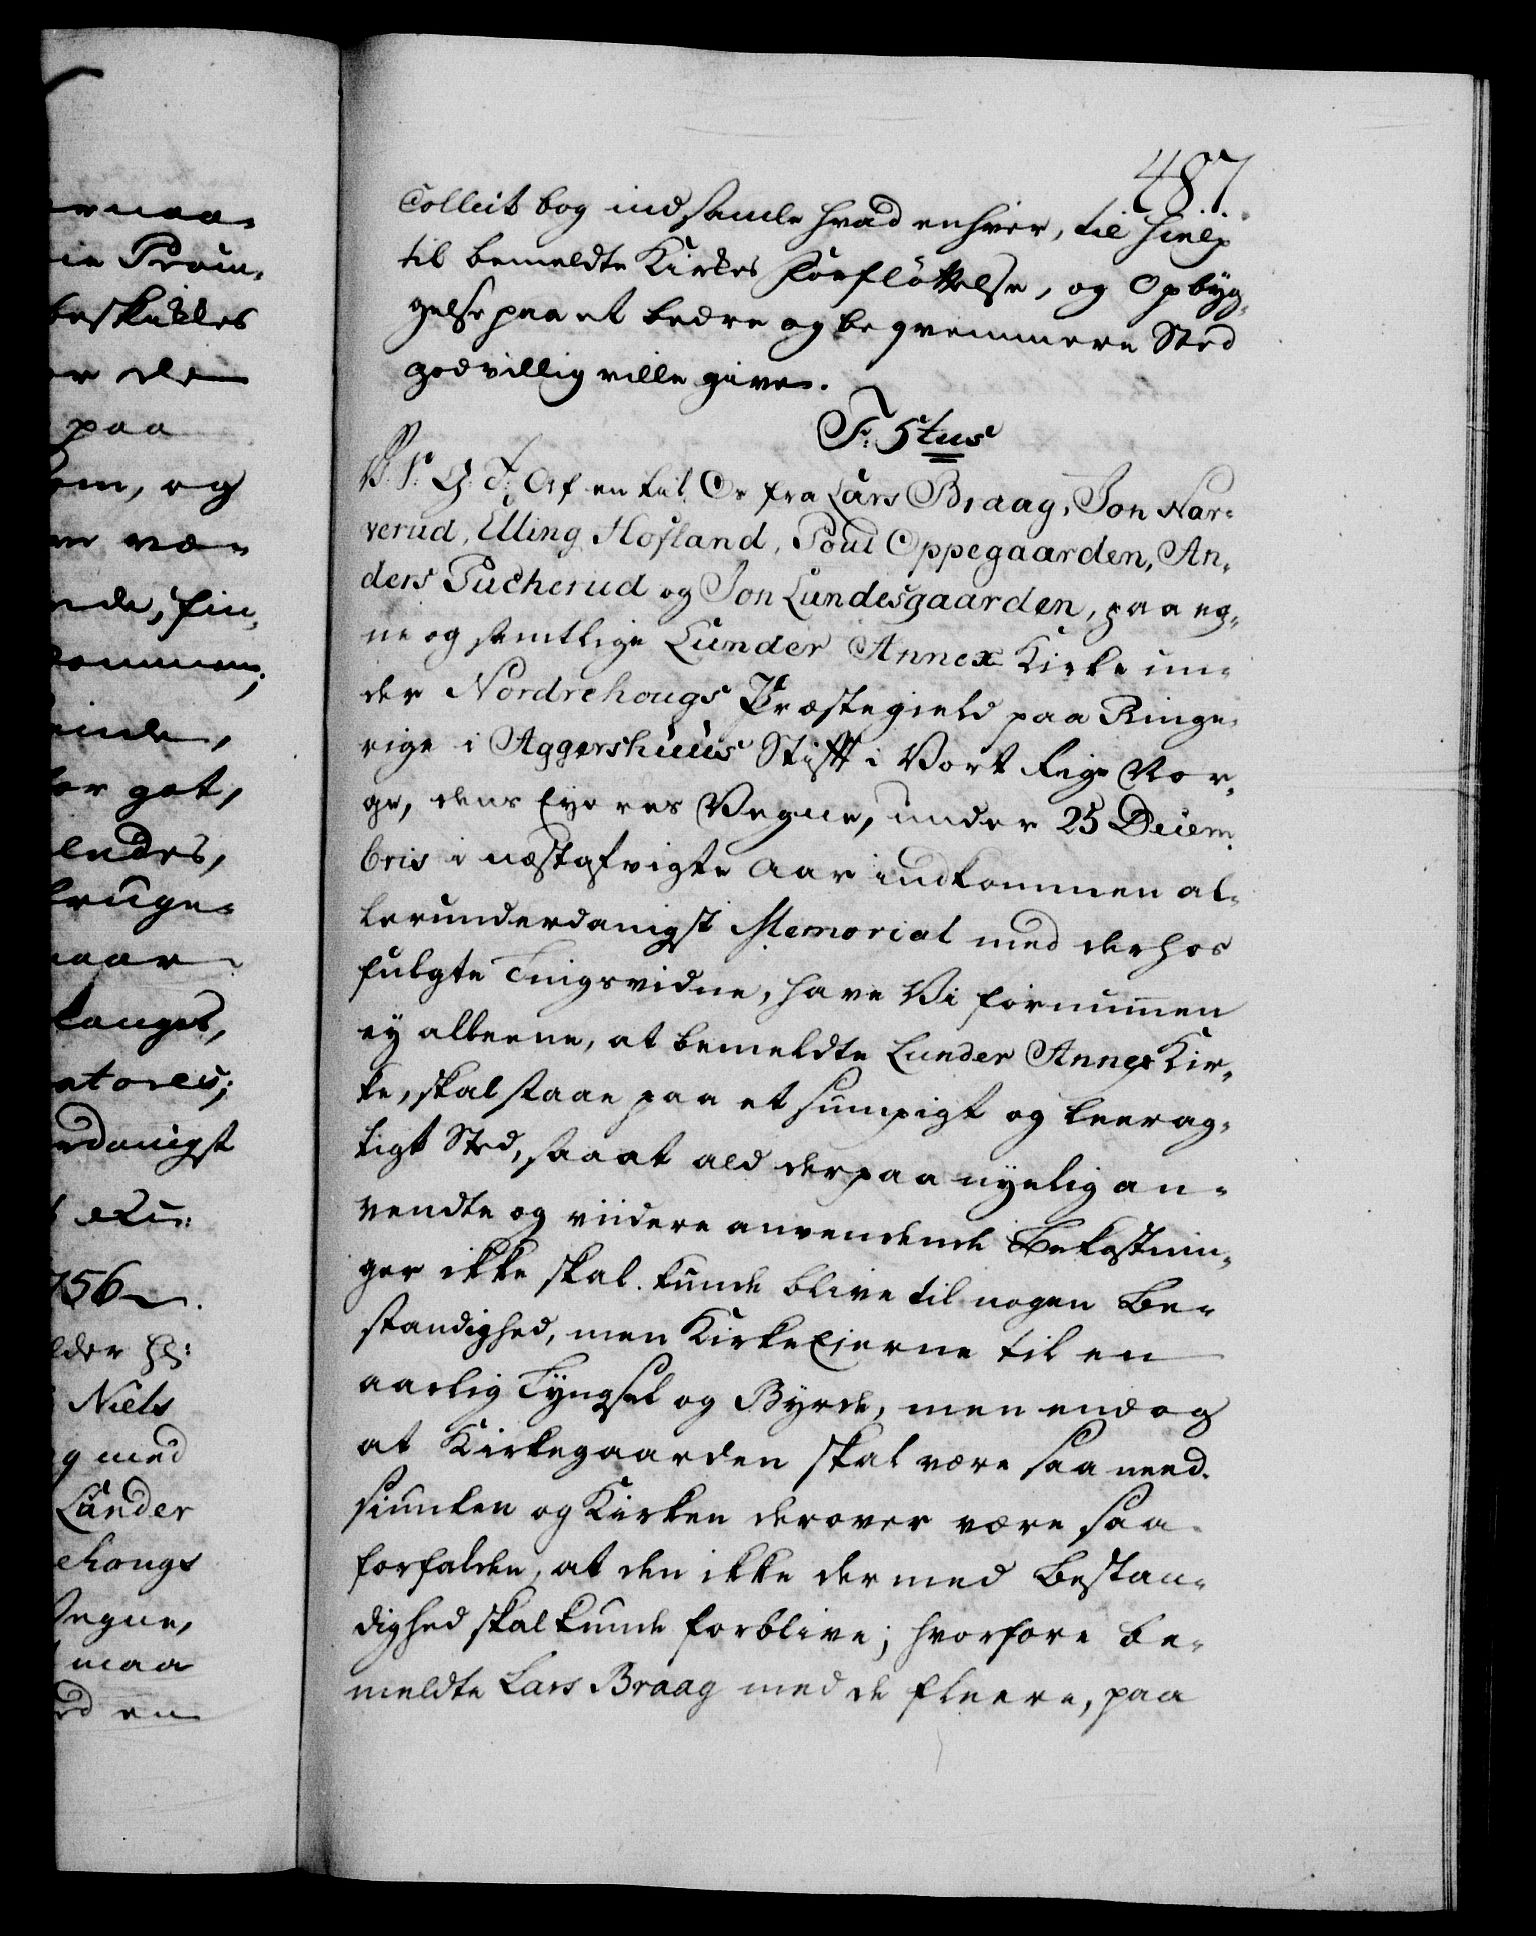 487.
Collect bog indsamle hvad enhver, til Hielp
til bemeldte Kirkes Forfløttelse, og Opbyg-
gelse paa et bedre og beqvemmere Sted
godvillig ville give.
F: 5tus
V. S. G. T. Af en fra Lars Braag, Jon Nar-
verud, Elling Hofland, Poul Oppegaarden, An-
ders Pucherud og Jon Lundesgaarden, paa eg-
ne og samtlige Lunder Annex Kirke un-
der Nordrehougs Præstegield paa Ringe-
rige i Aggershuus Stift i Vort Rige Nor-
ge, dens Eyeres Vegne, under 25 Decem-
bris i næstafvigte Aar indkommen al-
lerunderdanigst Memorial med derhos
fulgte Tingsvidne, have Vi fornummen
ey alleene, at bemeldte Lunder Annex Kir-
ke, skal staae paa et sumpigt og leerag-
tigt Sted, saa at ald derpaa nyelig an-
vendte og viidere anvendende Bekostnin-
ger ikke skal kunde blive til nogen Be-
standighed, men KirkeEierne til en
aarlig Tyngsel og Byrde, men endog
at Kirkegaarden skal være saa need-
siunken og Kirken derover være saa
forfalden, at den ikke dermed Bestan-
dighed skal kunde forblive; hvorfore be-
meldte Lars Braag med de fleere, paa
ernaa-
beskikkes
er den
paa
om, og
ende, fin-
kommen;
for got,
ledes,
bruge-
atores;
erdanigst
756
Niels
g med
Lunder
ehougs
Vegne,
maa
ed en